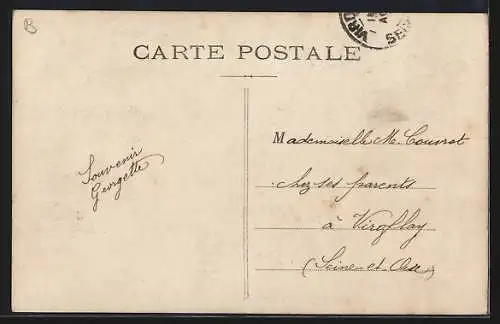 CARTE POSTALE
Souvenir
Georgette
Mademoiselle M. Couvrat
chez ses parents
à Viroflay
(Seine-et-Oise)